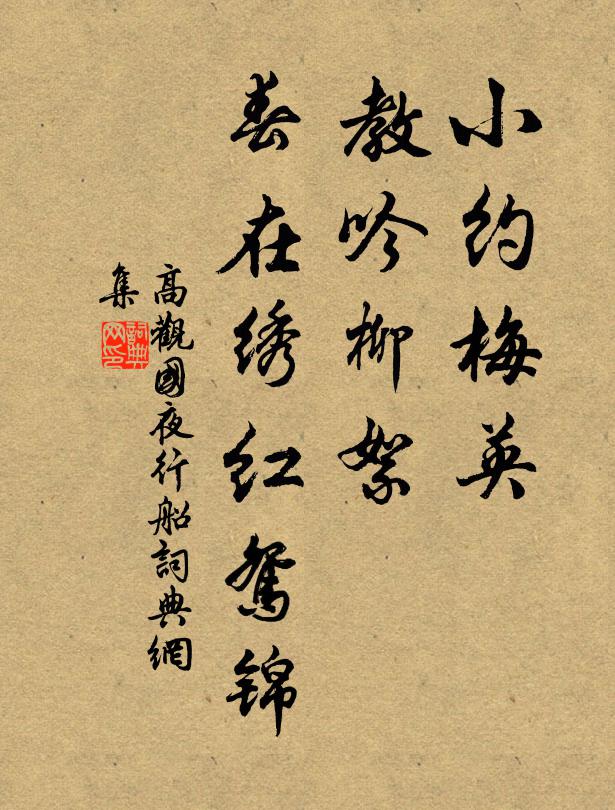 小约梅英
教吟柳絮
春在绣红鸳锦
高觀國夜行船詞典網
集
詞典网印